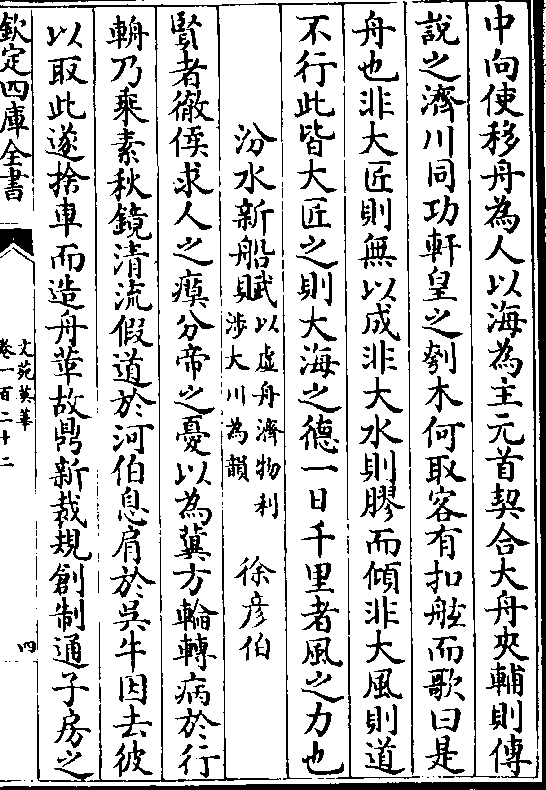 中向使移舟為人以海為主元首契合大舟夾輔則傳
說之濟川同功軒皇之刳木何取容有扣舷而歌曰是
舟也非大匠則無以成非大水則膠而傾非大風則道
不行此皆大匠之則大海之德一日千里者風之力也
汾水新船賦以虚舟濟物利涉大川為韻 徐彦伯
賢者徹侯求人之瘼分帝之憂以為蓂方輪轉病於行
輈乃乘素秋鏡清流假道於河伯息肩於吳牛因去彼
以取此遂捨車而造舟革故鼎新裁規創制通子房之
欽定四庫全書
文苑英華
卷一百二十二
四